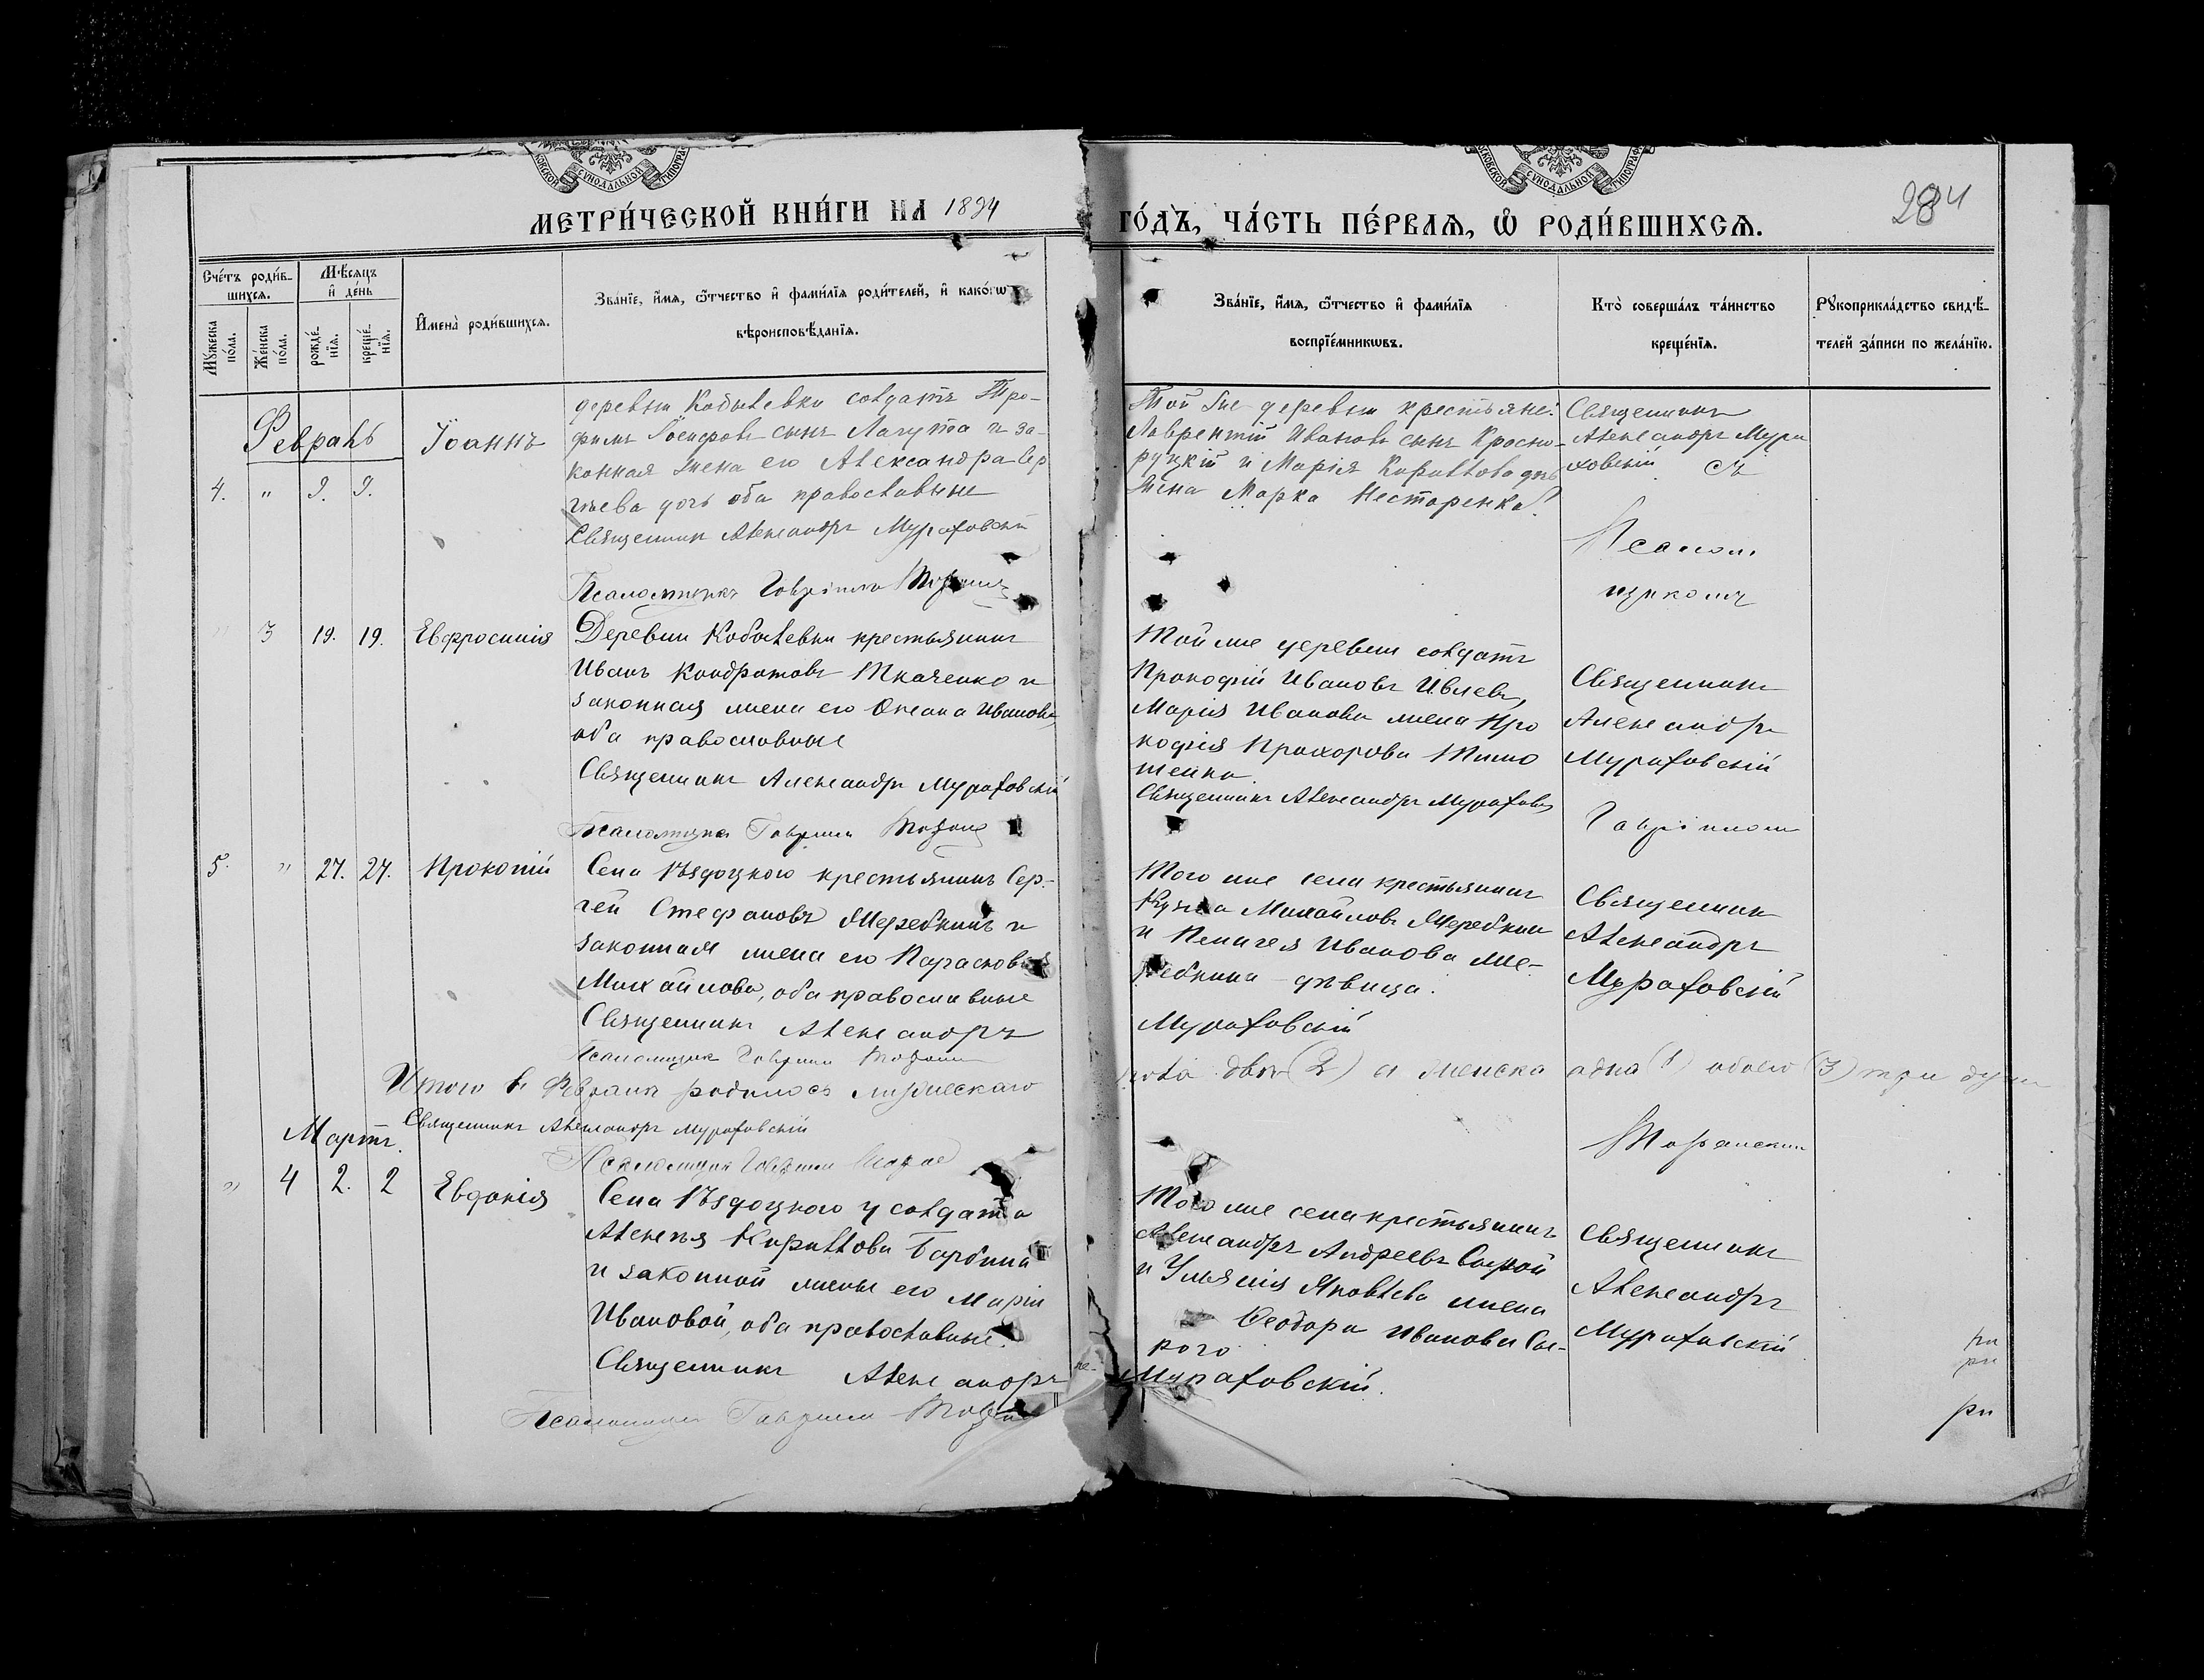 МЕТРИ́ЧЕСКОЙ КНИ́ГИ НА 1894 ГО́ДЪ, ЧА́СТЬ ПЕ́РВАѦ, Ѡ҆ РОДИ́ВШИХСѦ.
284
Сче́тъ роди́в-
шихсѧ.
Мѣ́сѧцъ
и҆ де́нь
Мꙋ́жеска
по́ла.
Же́нска
по́ла.
рожде́-
нїѧ.
креще́-
нїѧ.
И҆мена̀ роди́вшихсѧ.
Зва́нїе, и҆́мѧ, ѻ҆́тчество и҆ фами́лїѧ роди́телей, и҆ како́гѡ
вѣроисповѣ́данїѧ.
Зва́нїе, и҆́мѧ, ѻ҆́тчество и҆ фами́лїѧ
воспрїе́мникѡвъ.
Кто̀ соверша́лъ та́инство
креще́нїѧ.
Рꙋкоприкла́дство свидѣ́-
телей за́писи по жела́нїю.
Февраль
4. " 9. 9.
Іоаннъ
деревни Кобылевки солдатъ Тро-
фимъ Іосифовъ сынъ Лагута и за-
конная жена его Александра Сер
гіева дочь оба православные
Священникъ Александръ Мурафовскій
Псаломщикъ Гавріилъ
Той же деревни крестьяне:
Лаврентій Ивановъ сынъ Красно-
руцкій и Марія Кириллова дочь
жена Марка Нестеренка.
Священникъ
Александръ Мура
ховскій съ
Псалом
щикомъ
" 3 19. 19. Евфросинія
Деревни Кобылевки крестьянинъ
Иванъ Кондратовъ Ткаченко и
законная жена его Оксана Иванова,
оба православные
Священникъ Александръ Мурафовскій
Псаломщикъ Гавріилъ
Той же деревни солдатъ
Прокофій Ивановъ Ивлевъ,
Марія Иванова жена Про
кофія Прохорова Тимо
шенка.
Священникъ Александръ Мурафовск
Священникъ
Александръ
Мурафовскій
Гавріиломъ
5. " 27. 27. Прокопій
Села Вѣздоцкого крестьянинъ Сер-
гѣй Стефановъ Жеребкинъ и
законная жена его Парасковья
Михайлова, оба православные
Священникъ Александръ
Псаломщикъ Гавріилъ
Того же села крестьянинъ
Кузьма Михайловъ Жеребкин
и Пелагея Иванова Же-
ребкина дѣвица.
Мурафовскій
Священник
Александръ
Мурафовскій
Итого въ Февралѣ родилось мужескаго пола два (2) а женска одна (1) обоего (3) три души
Священникъ Александръ Мурафовскій
Псаломщикъ Гавріилъ
Мартъ.
" 4 2. 2 Евдокія
Села Вѣздоцкого у солдата
Алексѣя Кириллова
и законной жены его Маріи
Ивановой, оба православные.
Священникъ Александръ
Псаломщикъ Гавріилъ
Того же села крестьянинъ
Александръ Андреевъ Сырой
и Ульянія Яковлева жена
Ѳеодора Иванова Сы-
рого
Мурафовскій.
Священникъ
Александръ
Мурафовскій